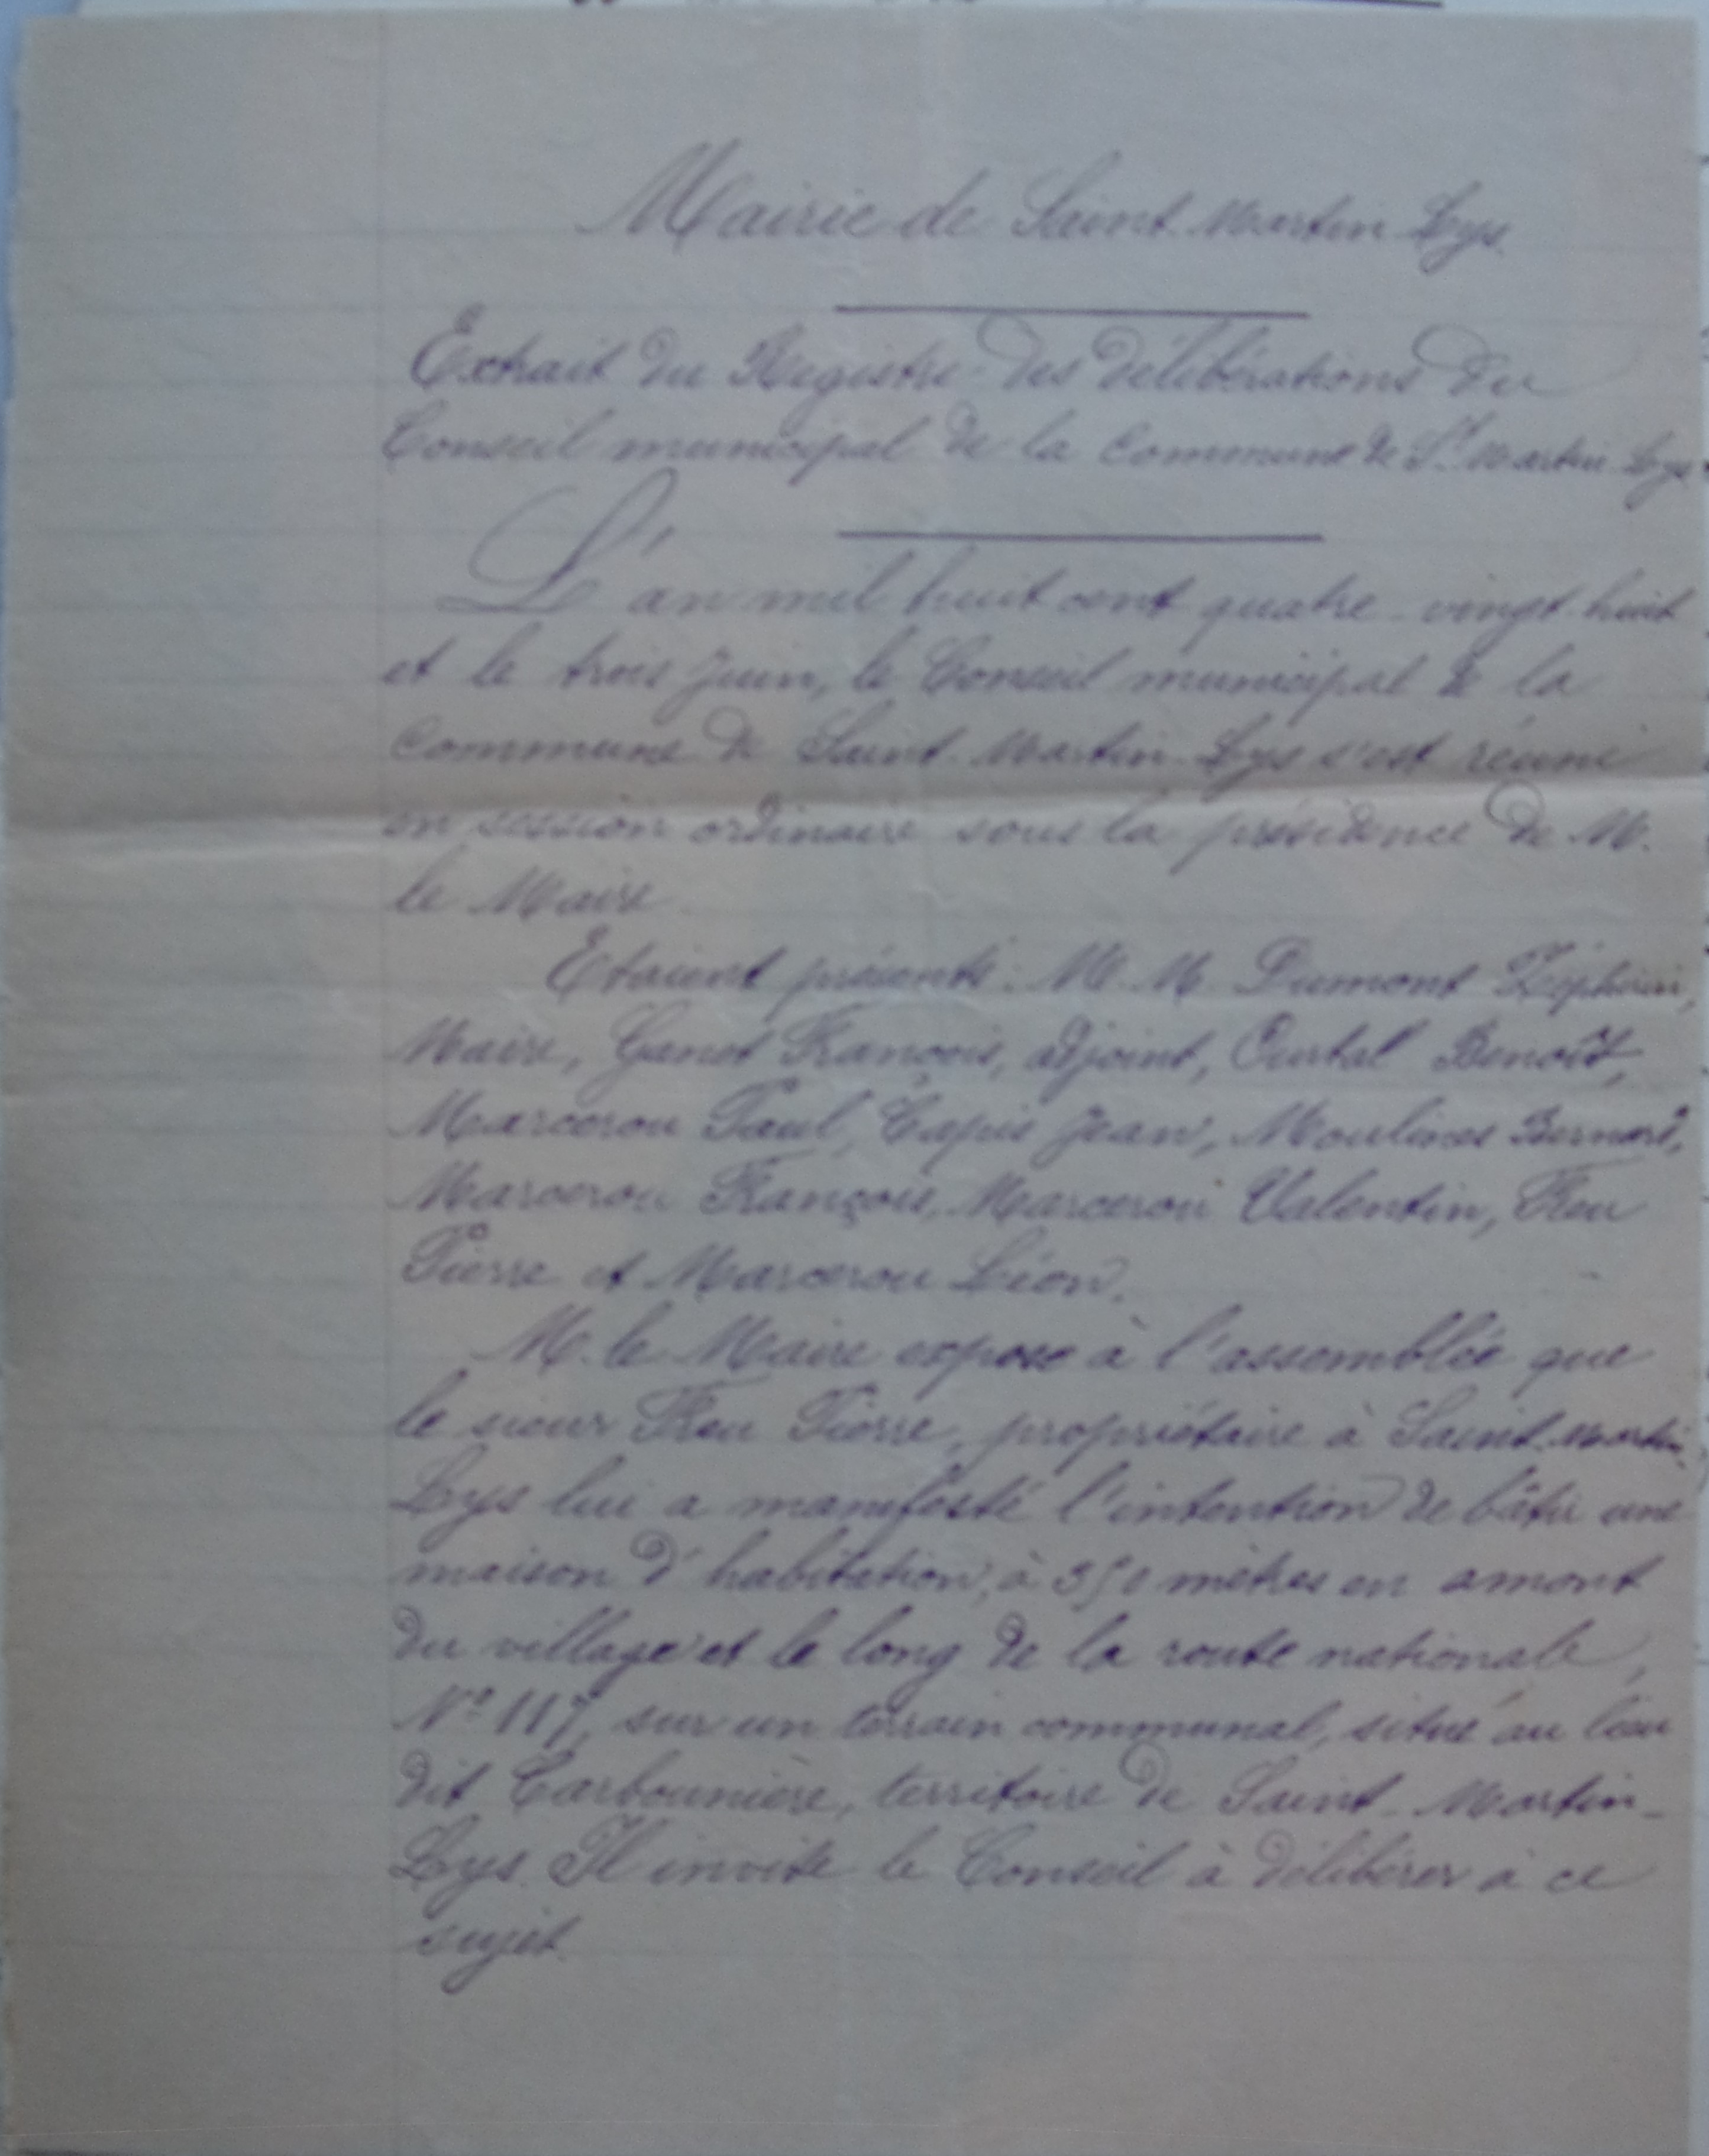 Mairie de Saint Martin Lys
Extrait du Registre des délibérations du
Conseil municipal de la Commune de St Martin Lys
L'an mil huit cent quatre-vingt huit
et le trois Juin, le Conseil municipal de la
Commune de Saint-Martin-Lys s'est réuni
en session ordinaire sous la présidence de M.
le Maire
Etaient présents: M. M. Dumont Zéphirin,
Maire, François, adjoint, Benoît,
Marcerou Paul, Capis Jean, Moulines Bernard,
Marcerou François, Marcerou Valentin, Feu
Pierre et Marcerou Léon.
M. le Maire expose à l'assemblée que
le sieur Feu Pierre, propriétaire à Saint-Martin
Lys lui a manifesté l'intention de bâtir une
maison d'habitation, à 350 mètres en amont
du village et le long de la route nationale,
No 117, sur un terrain communal, situé au lieu
dit Carbounière, territoire de Saint-Martin-
Lys. Il invite le Conseil à délibérer à ce
sujet.